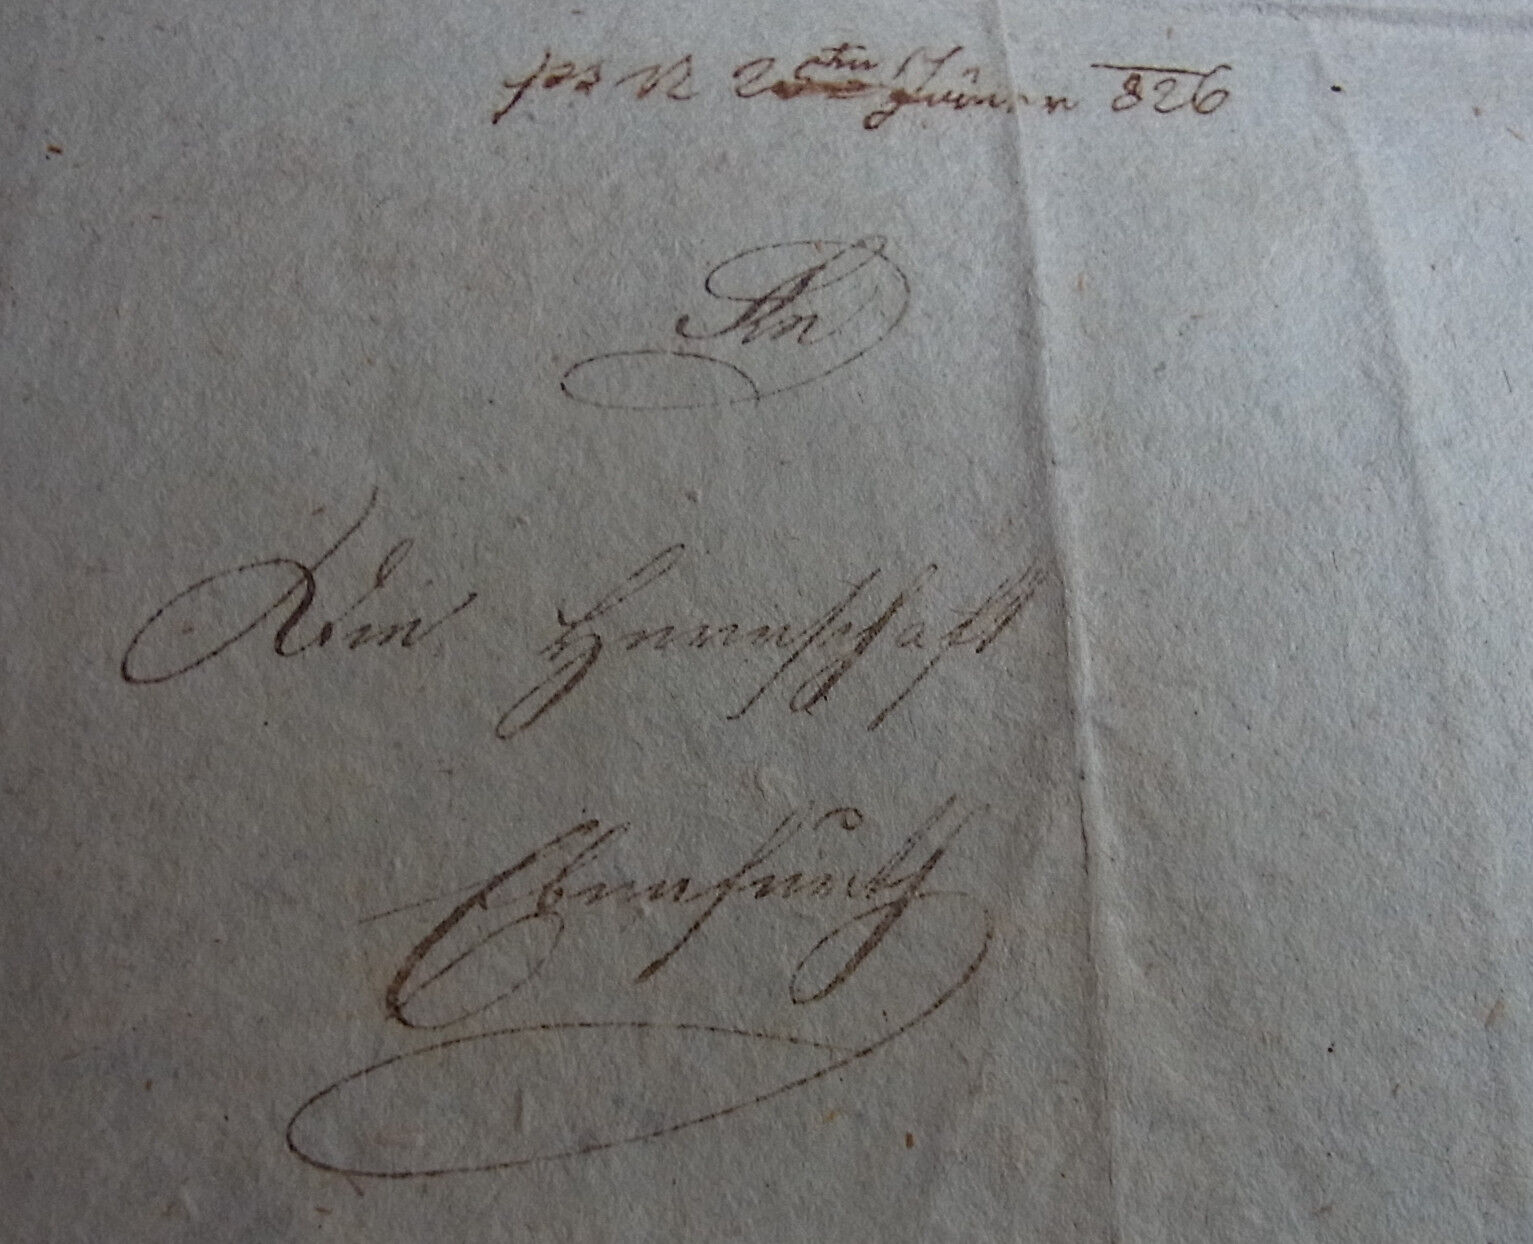 2ten Jäner 826
An
Die Herrschaft
Ebenfurth